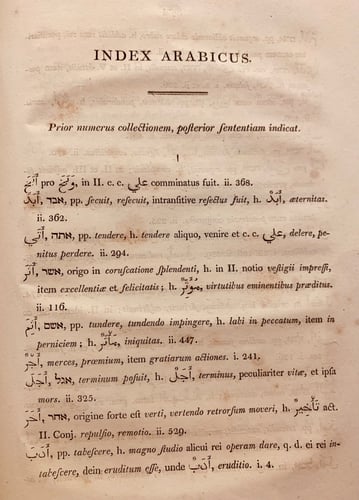 INDEX ARABICUS.
Prior numerus collectionem, posterior sententiam indicat.
ا
pro وَبَّخَ, in II. c. c. علي comminatus fuit. ii. 368.
אבד, pp. secuit, resecuit, intransitive resectus fuit, h. أَبَدٌ, æternitas.
ii. 362.
אתה, pp. tendere, h. tendere aliquo, venire et c. c. علي, delere, pe-
nitus perdere. ii. 294.
אשר, origo in coruscatione splendenti, h. in II. notio vestigii impressi,
item excellentiæ et felicitatis; h. virtutibus eminentibus præditus.
ii. 116.
אשם, pp. tundere, tundendo impingere, h. labi in peccatum, item in
perniciem; h. iniquitas. ii. 447.
أَجْر, merces, prœmium, item gratiarum actiones. i. 241.
terminum posuit, h. أَجَل, terminus, peculiariter vitæ, et ipsa
mors. ii. 325.
אחר, origine forte est verti, vertendo retrorsum moveri, h. تأخير act.
II. Conj. repulsio, remotio. ii. 529.
pp. tabescere, h. magno studio alicui rei operam dare, q. d. ei rei in-
tabescere, dein eruditum esse, unde أَدَب, eruditio. i. 4.